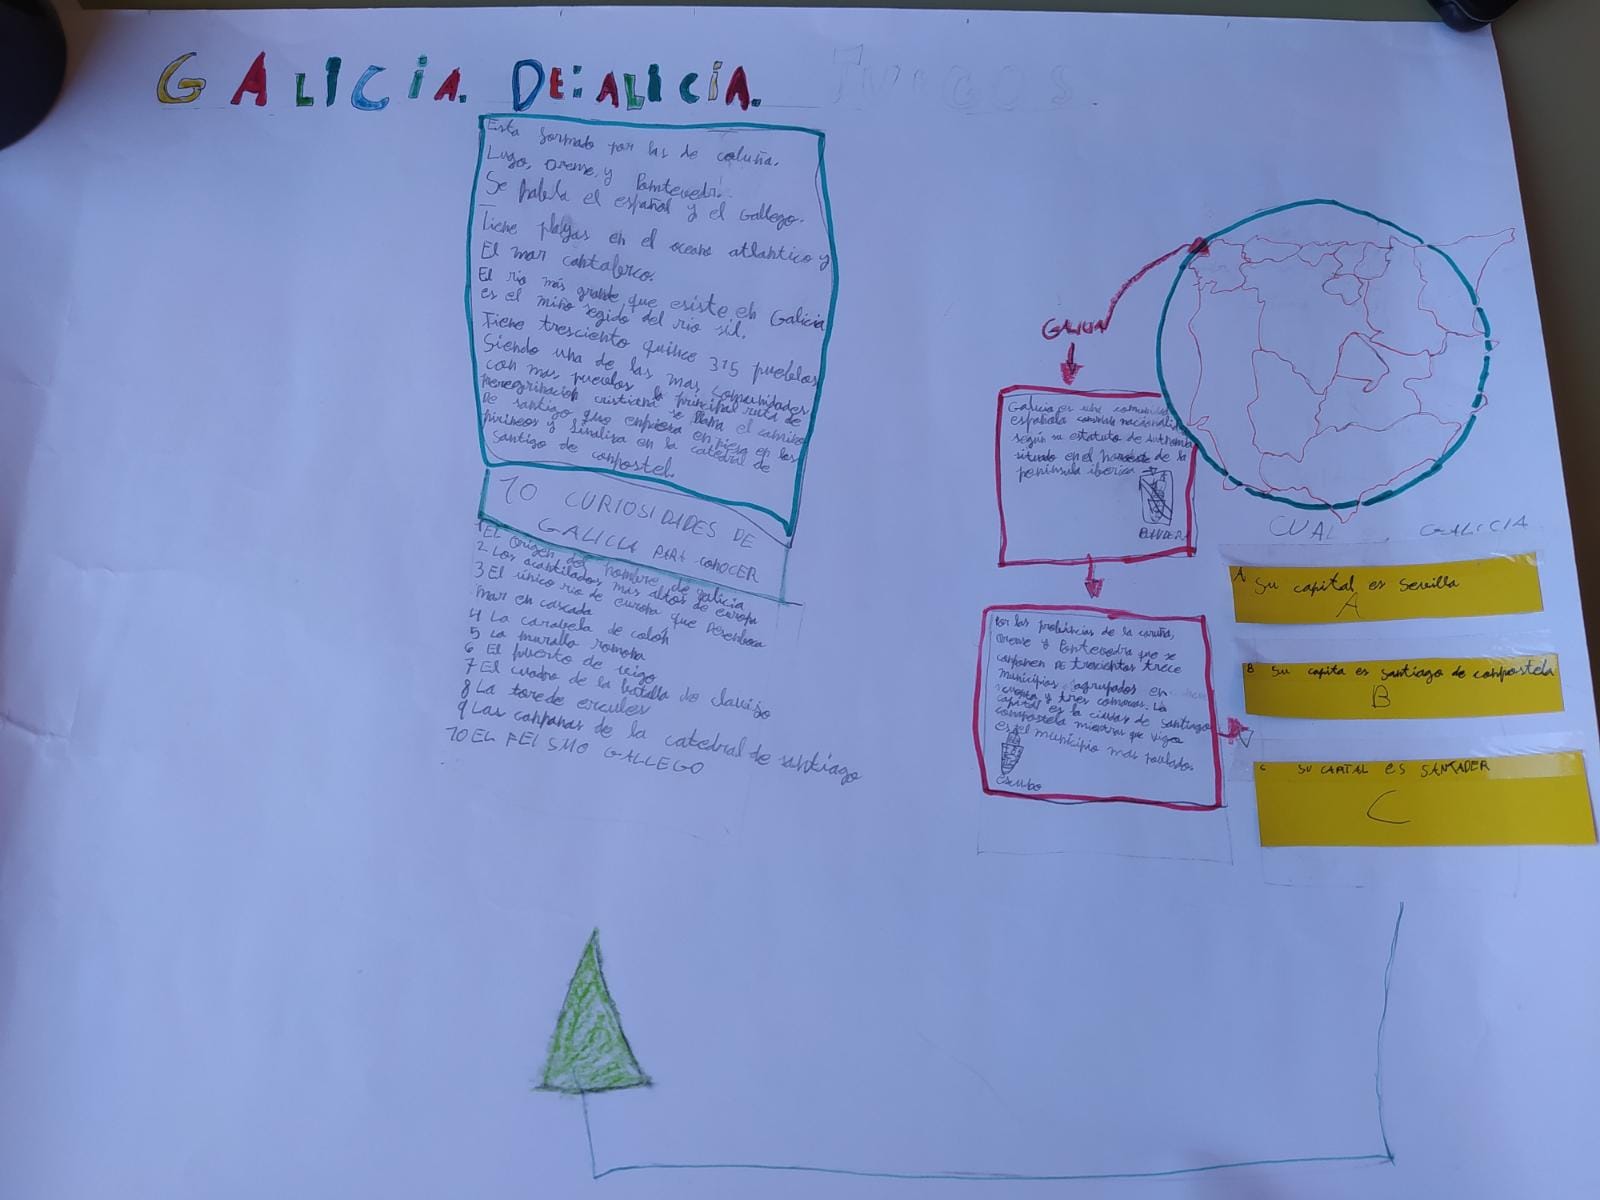 GALICIA. DE: ALICIA.
JUEGOS
Esta formado por las de coluña.
Lugo, Orense, y Pontevedr.
Se habla el español y el Gallego.
Tiene playas en el oceano atlantico y
El mar cantabrco.
El rio más grande, que esiste en Galicia
es el miño segido del rio sil.
Tiene tresciento quince 315 pueblos
Siendo una de las mas comunidades
con mas pueblos la principal ruta de
peregrinacion cristiana se llama el camino
De santiago que empiesa en pies en los
pirineos y finaliza en la catedral de
Santigo de conpostel.
10 CURIOSIDADES DE
GALICIA PARA CONOCER
1 EL origen del nombre de galicia
2 Los acantilados mas altos de europa
3 El único rio de europa que Desenboca
mar en cascada
4 La carabela de colón
5 La muralla romana
6 El puerto de vigo
7 El cuadro de la batalla de clavijo
8 La torede ercules
9 Las canpanas de la catedral de santiago
10 EL FEISMO GALLEGO
GALICIA
Galicia es una comunidad
española
según su estatuto de autonomia
situado en el de la
peninsula iberica
BANDERA
Por las probincias de la coruña,
Orense y Pontevedra que se
conponen De trescientos trece
municipios agrupados en
y tres comarcas. La
capital es la ciudad de santiago
compostela mientras que vigo
es el municipio mas poblados
escudo
CUAL GALICIA
A Su capital es Sevilla
A
B Su capita es santiago de conpostela
B
C SU CAPITAL ES SANTADER
C